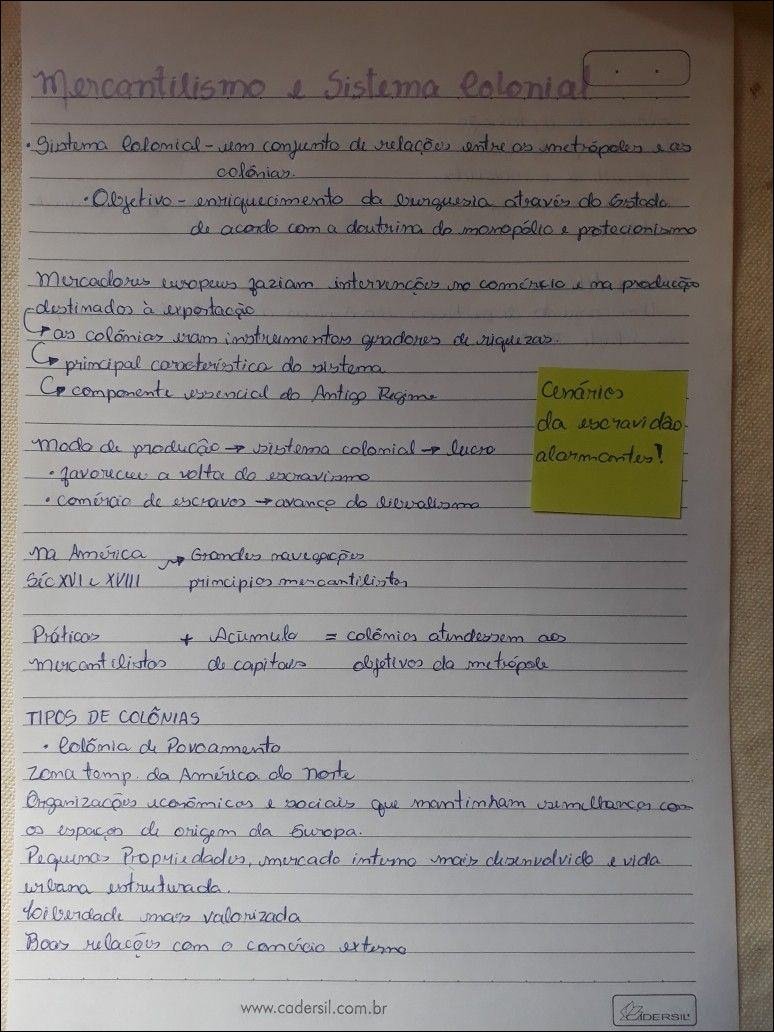 Mercantilismo e Sistema Colonial
• Sistema Colonial - um conjunto de relações entre os metrópoles e as
colônias.
• Objetivo - enriquecimento da burguesia através do Estado
de acordo com a doutrina do monopólio e protecionismo
Mercadores europeus faziam intervenções no comércio e na produção
destinados à exportação
↳ as colônias eram instrumentos geradores de riquezas.
↳ principal característica do sistema
↳ componente essencial do Antigo Regime
Cenários
da escravidão
alarmantes!
Modo de produção → sistema colonial → lucro
• favoreceu a volta do escravismo
• comércio de escravos → avanço do liberalismo
Na América → Grandes navegações
Séc XVI e XVIII principios mercantilistas
Práticas + Acúmulo = colônias atendessem aos
mercantilistas de capitais objetivos da metrópole
TIPOS DE COLÔNIAS
• Colônia de Povoamento
Zona temp. da América do Norte
Organizações econômicas e sociais que mantinham semelhanças com
os espaços de origem da Europa.
Pequenas Propriedades, mercado interno mais disenvolvido e vida
urbana estruturada.
Liberdade mais valorizada
Boas relações com o comércio externo
www.cadersil.com.br
CADERSIL